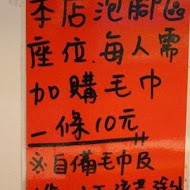 本店泡腳區
座位.每人需
加購毛巾
一條10元
※自備毛巾及